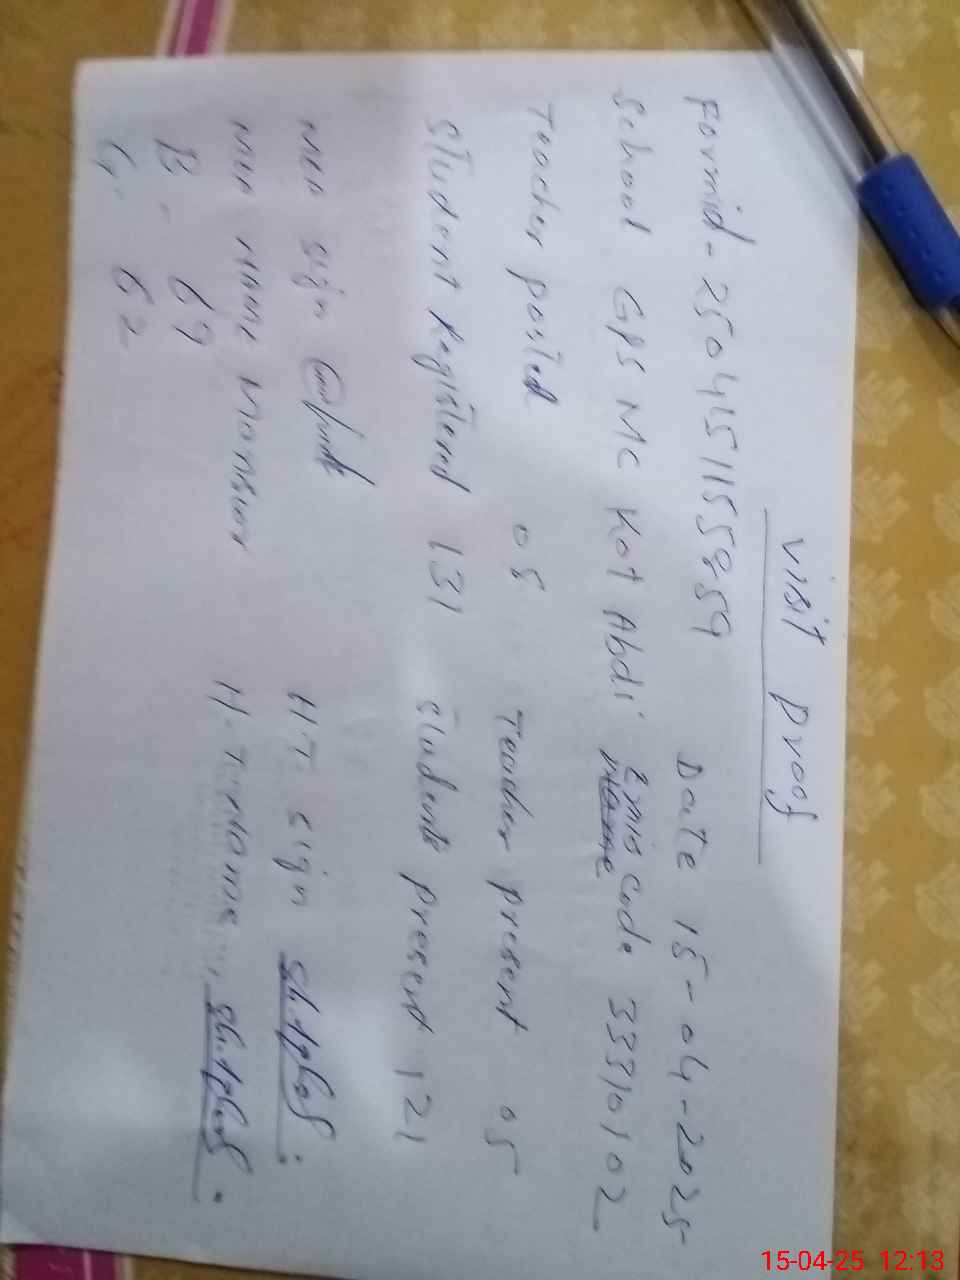 Visit proof
Formid - 250415115859 Date 15-04-2025
School GPS MC Kot Abdi Emis code 33310102
Teacher posted 05 Teacher present 05
Student Registered 131 Students present 121
MEA sign HT. sign
MEA name Mansur H. T Name
B - 69
G. 62
15-04-25 12:13